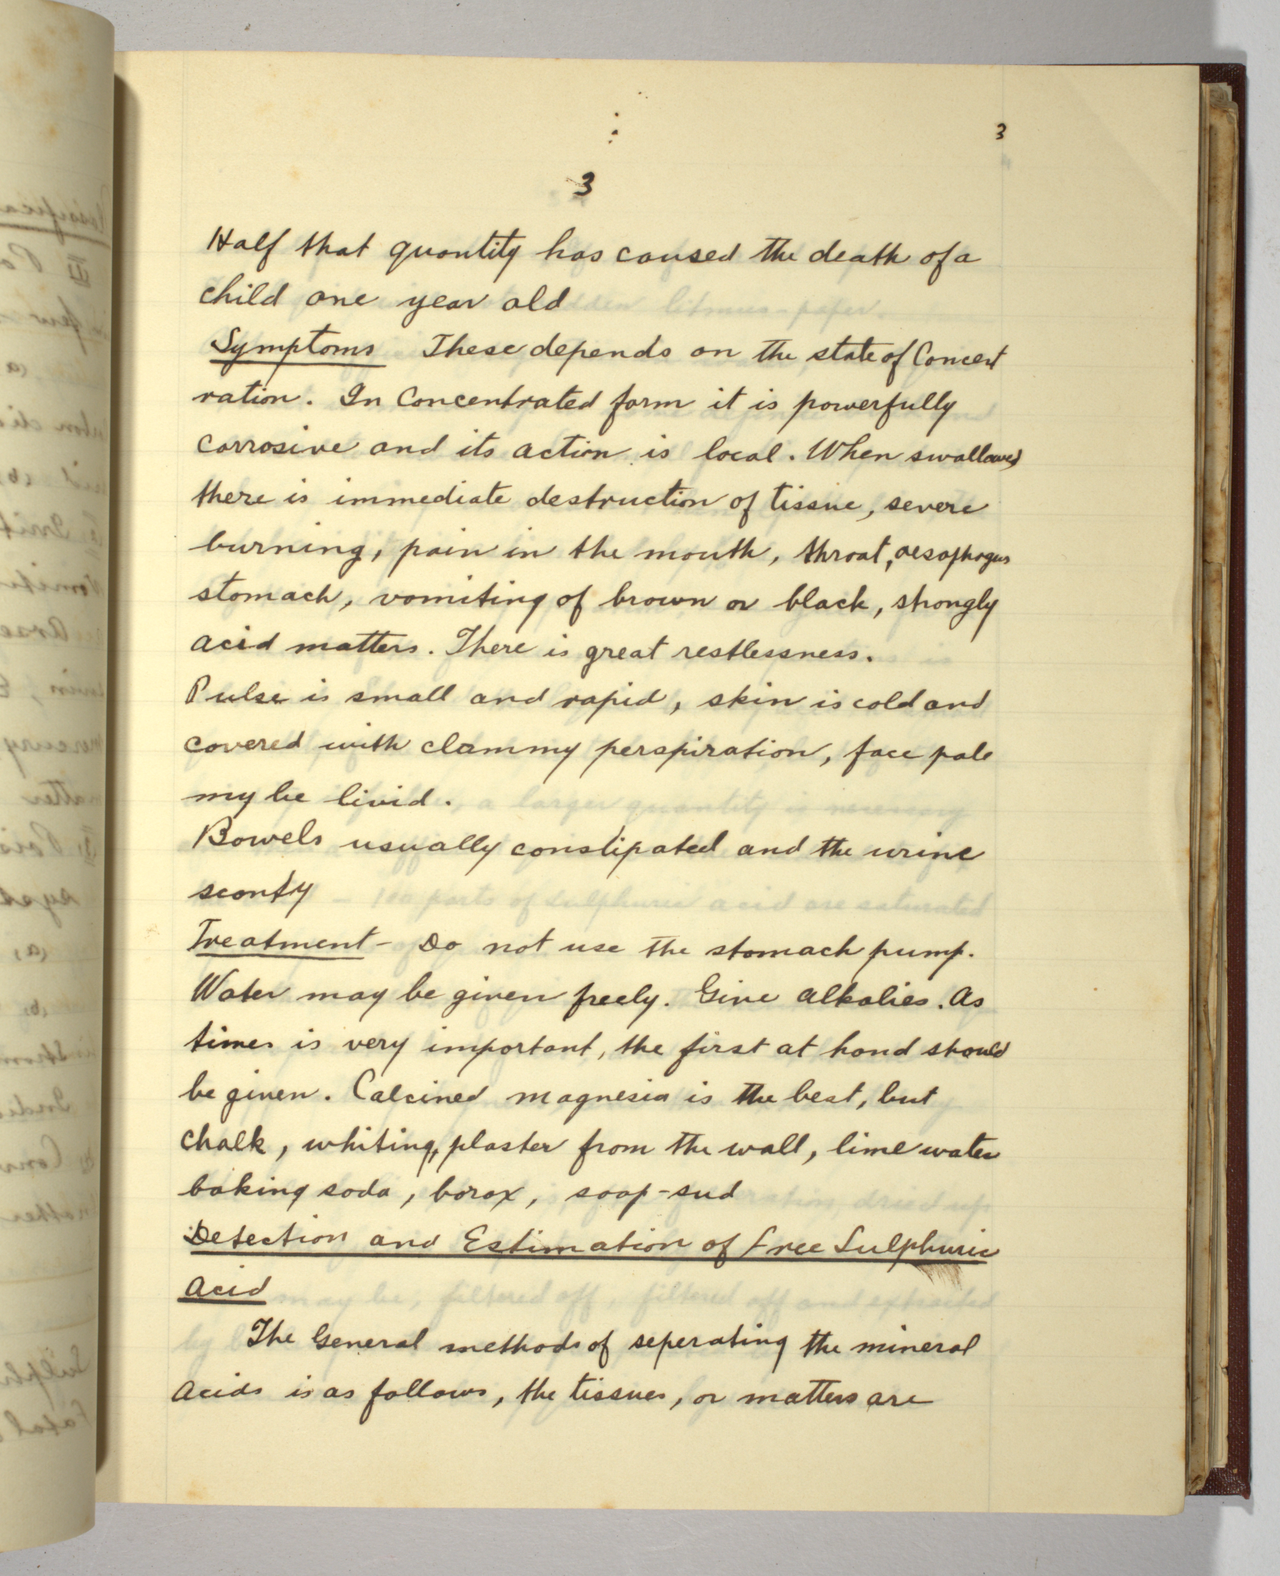 3
3
Half that quantity has caused the death of a
child one year old
Symptoms These depends on the state of Concent
ration. In Concentrated form it is powerfully
corrosive and its action is local. When swallowed
there is immediate destruction of tissue, severe
burning, pain in the mouth, throat, oesophagus
stomach, vomiting of brown or black, strongly
acid matters. There is great restlessness.
Pulse is small and rapid, skin is cold and
covered with clammy perspiration, face pale
my be livid.
Bowels usually constipated and the urine
scanty
Treatment - Do not use the stomach pump.
Water may be given freely. Give alkalies. As
times is very important, the first at hand should
be given. Calcined magnesia is the best, but
chalk, whiting, plaster from the wall, lime water
baking soda, borax, soap-sud
Detection and Estimation of Free Sulphuric
Acid
The General methods of seperating the mineral
acids is as follows, the tissues, or matters are